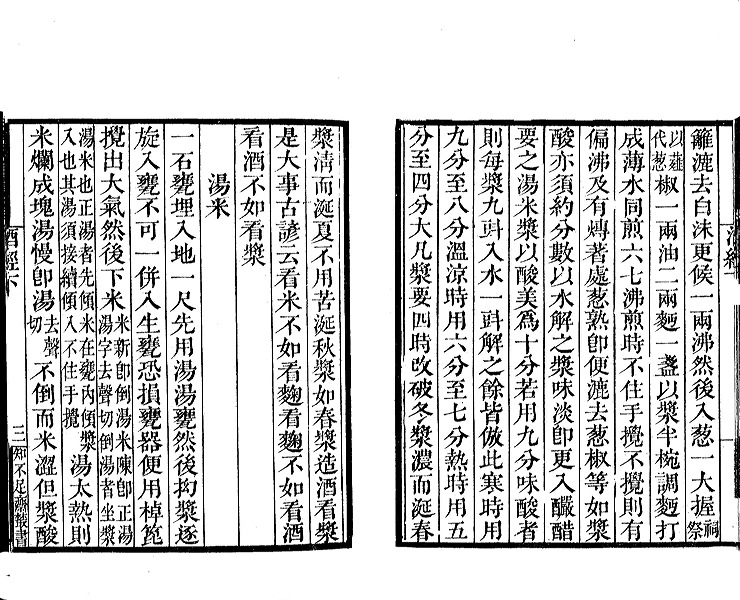 籬漉去白沫更候一兩沸然後入葱一大握祠祭
以薤代葱椒一兩油二兩麵一盞以漿半椀調麵打
成薄水同煎六七沸煎時不住手攪不攪則有
偏沸及有煿著處葱熟卽便漉去葱椒等如漿
酸亦須約分數以水解之漿味淡卽更入釅醋
要之湯米漿以酸美爲十分若用九分味酸者
則每漿九㪷入水一㪷解之餘皆倣此寒時用
九分至八分溫涼時用六分至七分熱時用五
分至四分大凡漿要四時改破冬漿濃而涎春
漿清而涎夏不用苦涎秋漿如春漿造酒看漿
是大事古諺云看米不如看麴看麴不如看酒
看酒不如看漿
湯米
一石甕埋入地一尺先用湯湯甕然後抝漿逐
旋入甕不可一併入生甕恐損甕器便用棹篦
攪出大氣然後下米米新卽倒湯米陳卽正湯湯字去聲切倒湯者坐漿
湯米也正湯者先傾米在甕內傾漿入也其湯須接續傾入不住手攪湯太熱則
米爛成塊湯慢卽湯去聲切不倒而米澀但漿酸
酒經下
三
知不足齋叢書